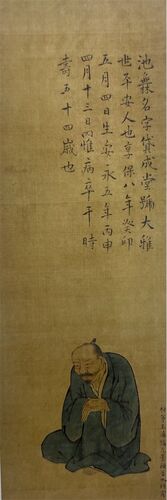 池無名字貸成堂號大雅
世平安人也享保八年癸卯
五月四日生安永五年丙申
四月十三日罹病卒于時
壽五十四歳也